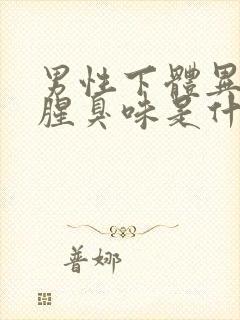 男性下體異
腥臭味是什
普娜